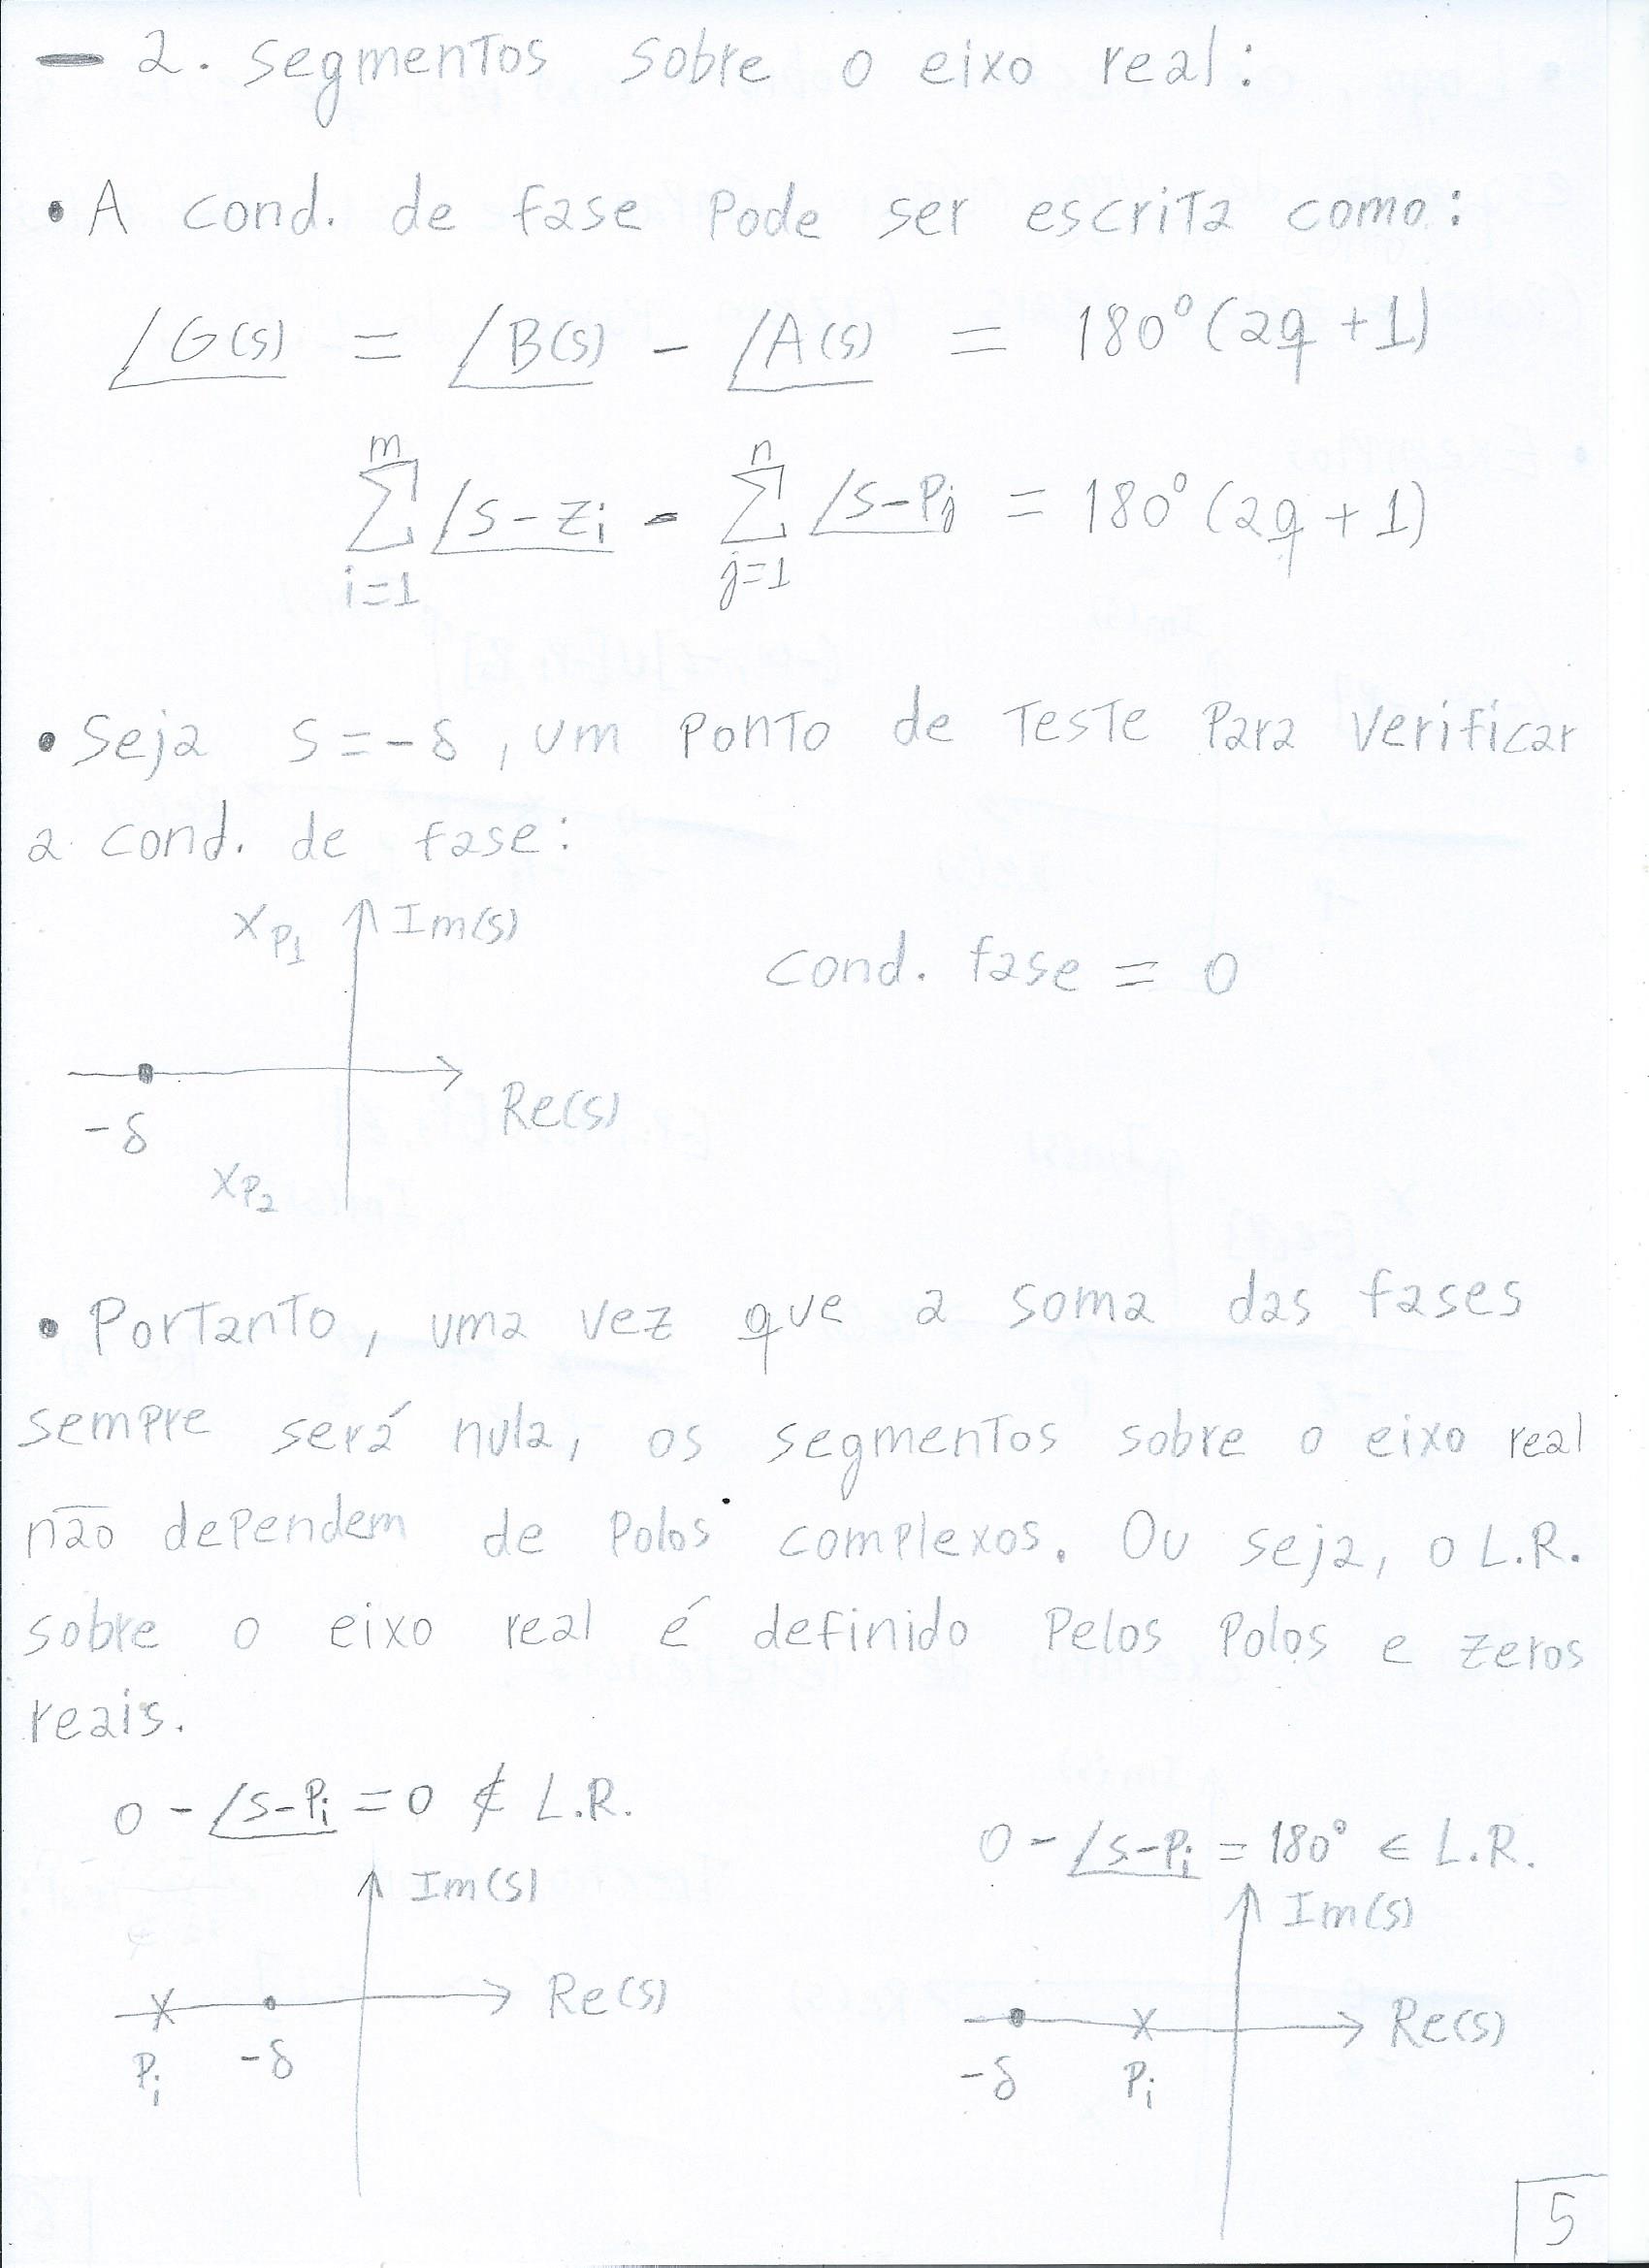 — 2. segmentos sobre o eixo real:
• A cond. de fase pode ser escrita como:
∠G(s) = ∠B(s) - ∠A(s) = 180°(2q+1)
m n
∑ ∠s-zi - ∑ ∠s-Pj = 180°(2q+1)
i=1 j=1
• Seja s=-δ, um ponto de teste para verificar
a cond. de fase:
x P1 Im(s)
cond. fase = 0
Re(s)
-δ
x P2
• Portanto, uma vez que a soma das fases
sempre será nula, os segmentos sobre o eixo real
não dependem de polos complexos. Ou seja, o L.R.
sobre o eixo real é definido pelos polos e zeros
reais.
0 - ∠s-Pi = 0 ∉ L.R.
0 - ∠s-Pi = 180° ∈ L.R.
Im(s)
Im(s)
Re(s)
Re(s)
Pi -δ
-δ Pi
5